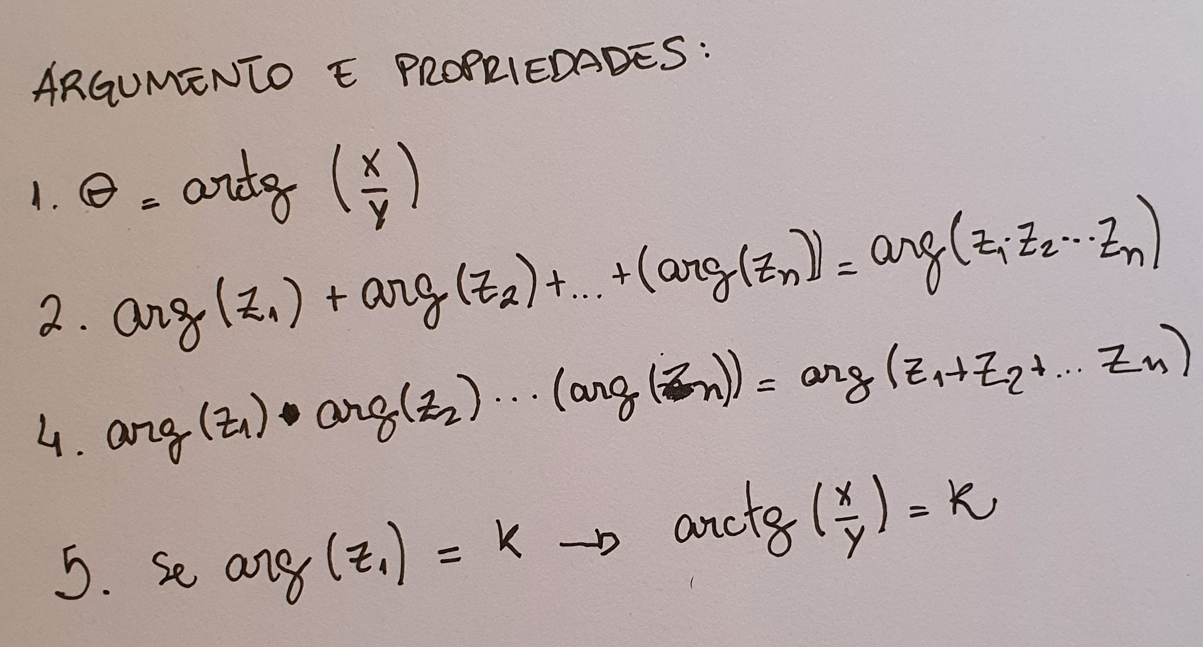 ARGUMENTO E PROPRIEDADES:
1. θ = arctg (x/y)
2. arg(z₁) + arg(z₂)+...+(arg(zₙ)) = arg(z₁·z₂...zₙ)
4. arg(z₁)•arg(z₂)...(arg(zₙ)) = arg(z₁+z₂+... zₙ)
5. Se arg(z₁) = k → arctg (x/y) = k